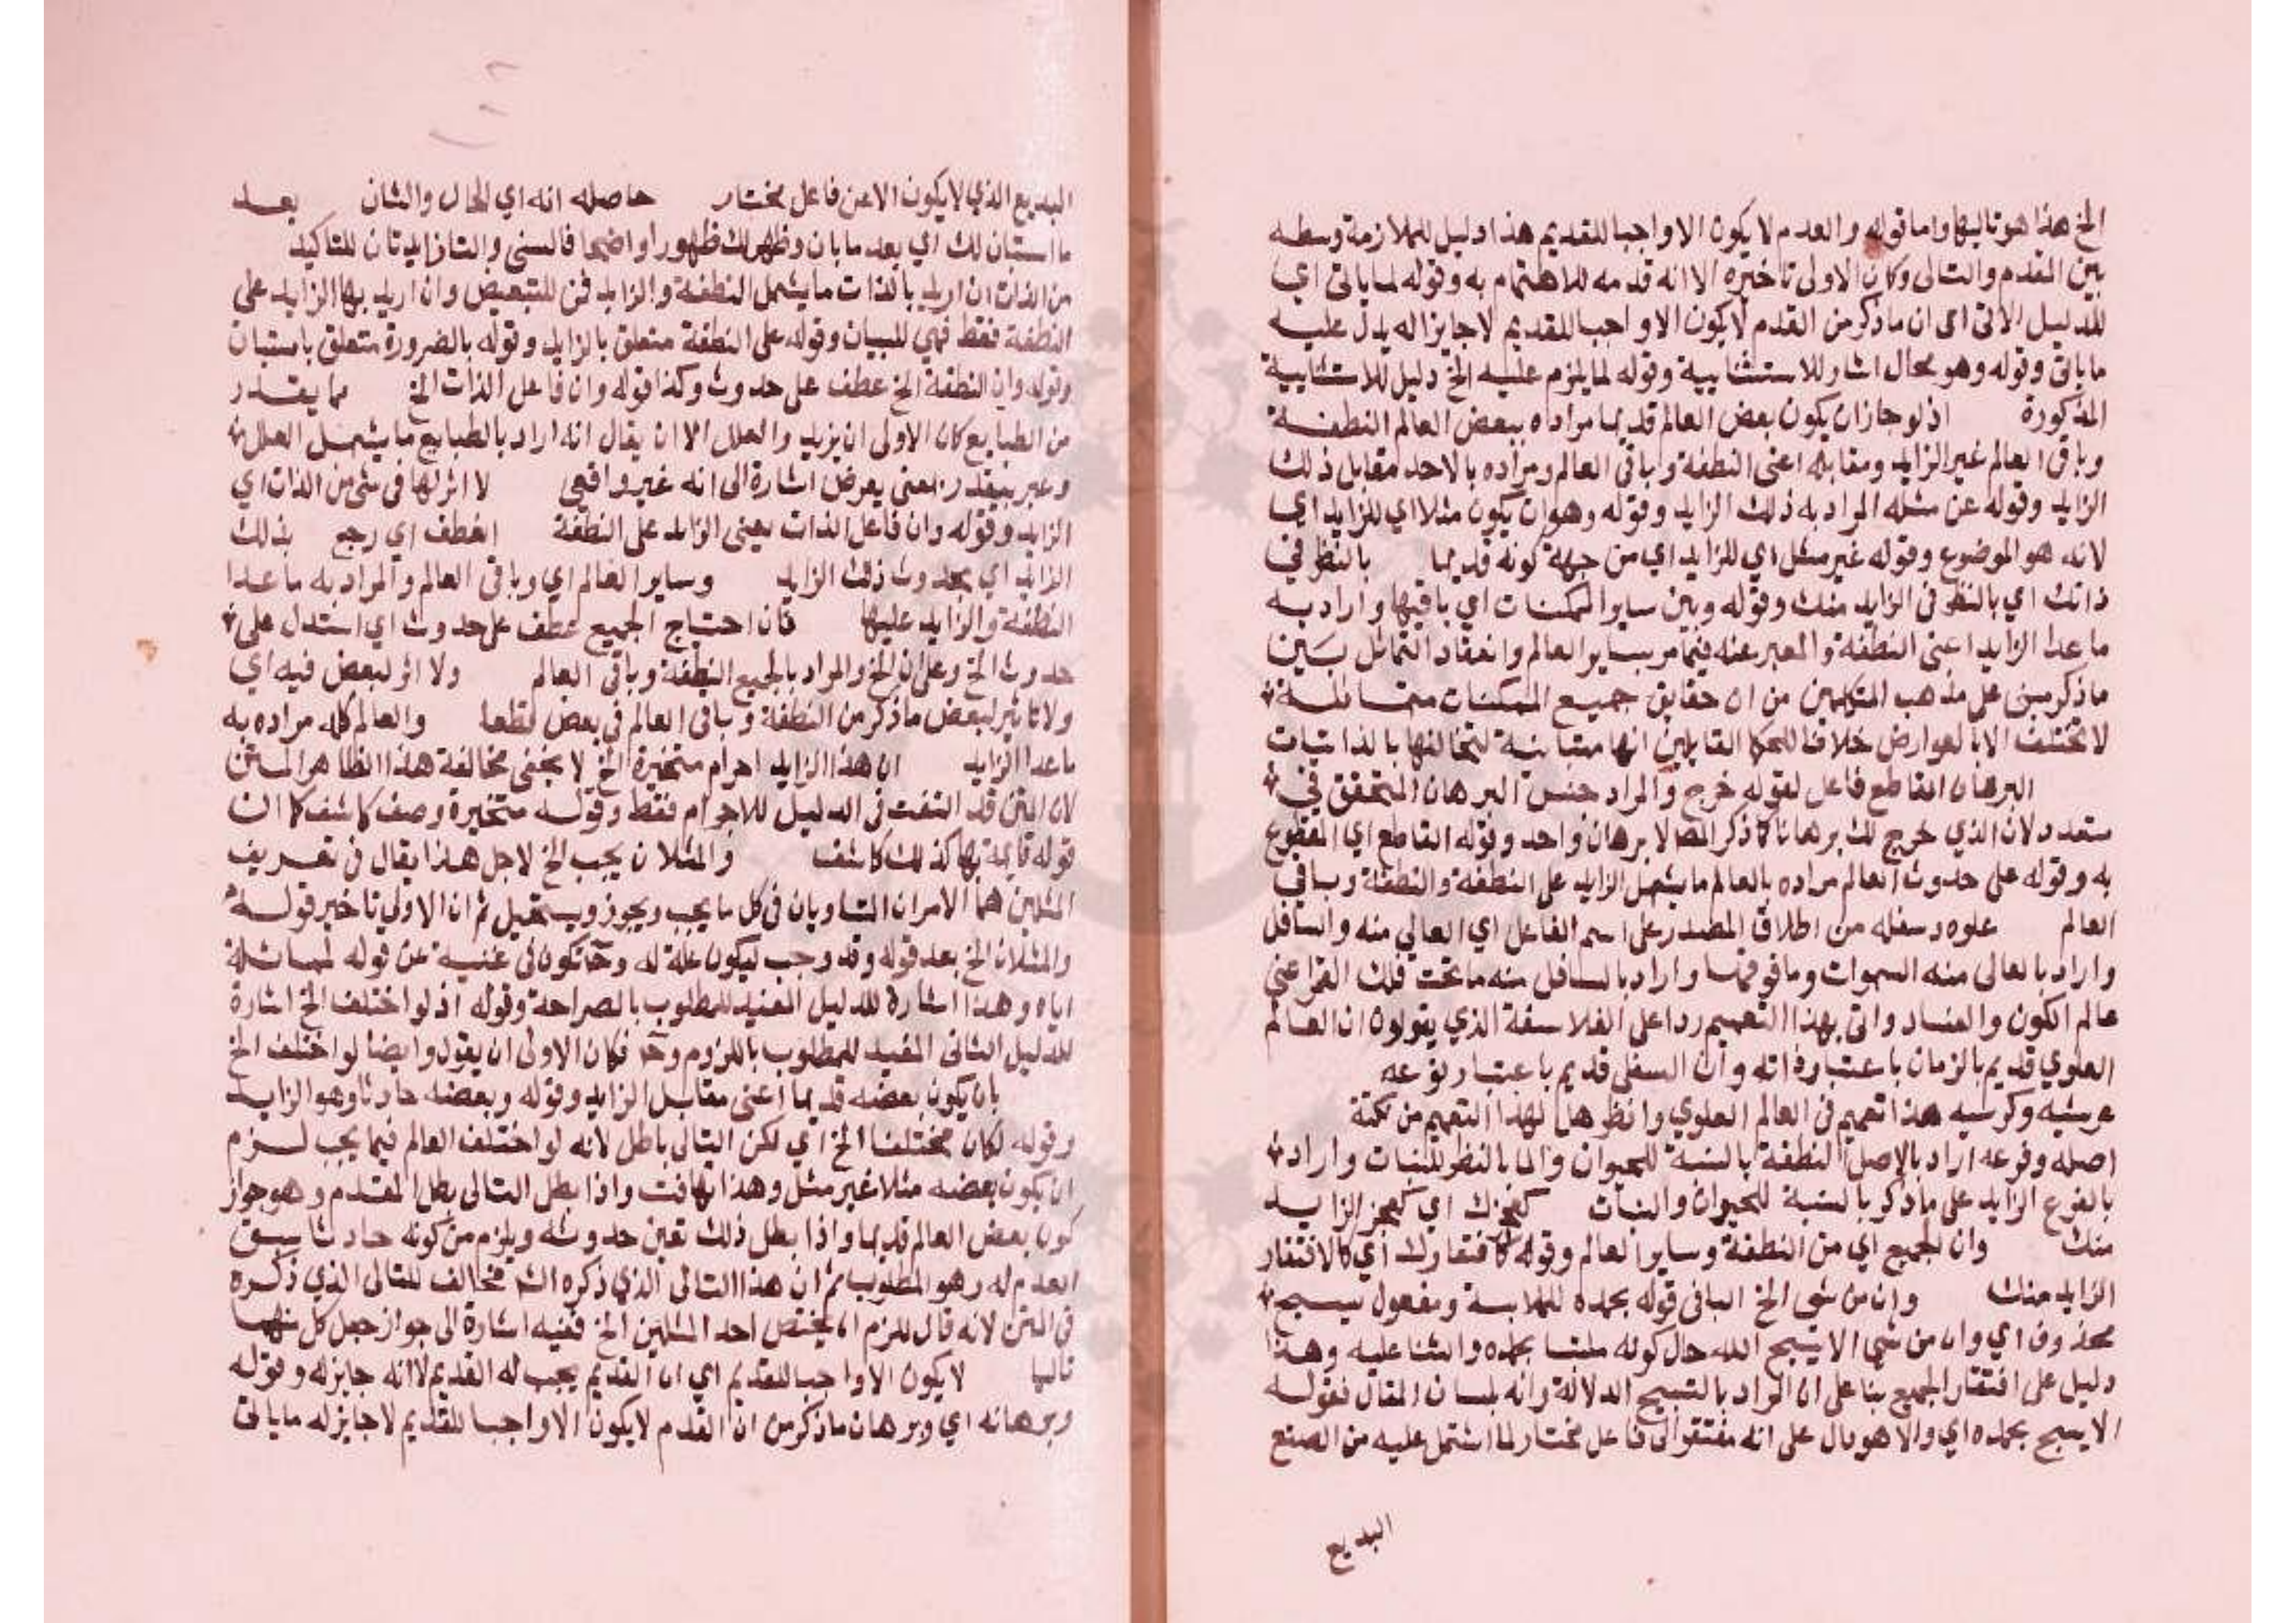 الخ هذا هو تاليها واما قوله والعدم لا يكون الا واجبا للقديم هذا دليل للملازمة وسطه
بين المقدم والتالى وكان الاولى تاخيره الا انه قدمه للاهتمام به وقوله لما ياتى اي
للدليل الاتى اى ان ما ذكر من القدم لا يكون الا واجبا للقديم لا جايزا له يدل عليه
ما ياتى وقوله وهو محال اشار للاستثنايية وقوله لما يلزم عليه الخ دليل للاستثنايية
المذكورة اذ لو جاز ان يكون بعض العالم قديما مراده ببعض العالم النطفة
وباقى العالم غير الزايد ومقابله اعنى النطفة وباقى العالم ومراده بالاحد مقابل ذلك
الزايد وقوله عن مثله المراد به ذلك الزايد وقوله وهو ان يكون مثلا اي للزايد اي
لانه هو الموضوع وقوله غير مثل اي للزايد اي من جهة كونه قديما بالنظر في
ذاتك اي بالنظر فى الزايد منك وقوله وبين ساير الممكنات اي باقيها واراد به
ما عدا الزايد اعنى النطفة والمعبر عنه فيما مر بساير العالم وانعقاد التماثل بين
ما ذكر مبنى على مذهب المتكلمين من ان حقايق جميع الممكنات متماثلة
لا تختلف الا بالعوارض خلافا للحكما القايلين انها متباينة لتخالفها بالذاتيات
البرهان القاطع فاعل لقوله خرج والمراد جنس البرهان المتحقق في
متعدد لان الذي خرج لك برهانا كا ذكر المصـ لا برهان واحد وقوله القاطع اي المقطوع
به وقوله على حدوث العالم مراده بالعالم ما يشمل الزايد على النطفة والنطفة وباقي
العالم علوه وسفله من اطلاق المصدر على اسم الفاعل اي العالي منه والسافل
واراد بالعالى منه السموات وما فوقها واراد بالسافل منه ما تحت فلك القمر اعنى
عالم الكون والفساد واتى بهذا التعميم ردا على الفلاسفة الذي يقولون ان العالم
العلوي قديم بالزمان باعتبار ذاته وان السفلى قديم باعتبار نوعه
عرشه وكرسيه هذا تعميم فى العالم العلوي وانظر هل لهذا التعميم من نكتة
اصله وفرعه اراد بالاصل النطفة بالنسبة للحيوان والما بالنظر للنبات واراد
بالفرع الزايد على ما ذكر بالنسبة للحيوان والنبات كعجزك اي كعجز الزايد
منك وان الجميع اي من النطفة وساير العالم وقوله كافتقارك اي كالافتقار
الزايد منك وان من شى الخ البا فى قوله بحمده للملابسة ومفعول يسبح
محذوف اي وان من شى الا يسبح الله حال كونه ملتبسا بحمده والثنا عليه وهذا
دليل على افتقار الجميع بنا على ان المراد بالتسبيح الدلالة وانه بلسان المقال فقوله
الا يسبح بحمده اي والا هو دال على انه مفتقر الى فاعل مختار لما اشتمل عليه من الصنع
البديع
البديع الذي لا يكون الا عن فاعل مختار حاصله انه اي الحال والشان بعد
ما استبان لك اي بعد ما بان وظهر لك ظهورا واضحا فالسين والتا زايدتان للتاكيد
من الذات ان اريد بالذات ما يشمل النطفة والزايد فمن للتبعيض وان اريد بها الزايد على
النطفة فقط فهي للبيان وقوله على النطفة متعلق بالزايد وقوله بالضرورة متعلق باستبان
وقوله وان النطفة الخ عطف على حدوث وكذا قوله وان فاعل الذات الخ مما يقدر
من الطبايع كان الاولى ان يزيد والعلل الا ان يقال انه اراد بالطبايع ما يشمل العلل
وعبر بيقدر بمعنى يعرض اشارة الى انه غير واقعي لا اثر لها فى شى من الذات اي
الزايد وقوله وان فاعل الذات يعنى الزايد على النطفة انعطف اي رجع بذلك
الزايد اي بحدوث ذلك الزايد وساير العالم اي وباقى العالم والمراد به ما عدا
النطفة والزايد عليها فان احتياج الجميع عطف على حدوث اي استدل على
حدوث الخ وعلى ان الخ والمراد بالجميع النطفة وباقى العالم ولا اثر لبعض فيه اي
ولا تاثير لبعض ما ذكر من النطفة وباقى العالم فى بعض قطعا والعالم كله مراده به
ما عدا الزايد ان هذا الزايد اجرام متحيزة الخ لا يخفى مخالفة هذا الظاهر المتن
لان المتن قد التفت فى الدليل للاجرام فقط وقوله متحيزة وصف كاشف كا ان
قوله قايمة بها كذلك كاشف والمثلان يجب الخ لاجل هذا يقال فى تعريف
المثلين هما الامران المتساويان فى كل ما يجب ويجوز ويستحيل ثم ان الاولى تاخير قوله
والمثلان الخ بعد قوله وقد وجب ليكون علة له وحـ تكون فى غنية عن قوله لمماثلة
اياه وهذا اشارة للدليل المفيد للمطلوب بالصراحة وقوله اذ لو اختلف الخ اشارة
للدليل الثانى المفيد للمطلوب باللزوم وحـ فكان الاولى ان يقول وايضا لو اختلف الخ
بان يكون بعضه قديما اعنى مقابل الزايد وقوله وبعضه حادثا وهو الزايد
وقوله لكان مختلفا الخ اي لكن التالى باطل لانه لو اختلف العالم فيما يجب لزم
ان يكون بعضه مثلا غير مثل وهذا تهافت واذا بطل التالى بطل المقدم وهو جواز
كون بعض العالم قديما واذا بطل ذلك تعين حدوثه ويلزم من كونه حادثا سبق
العدم له وهو المطلوب ثم ان هذا التالى الذي ذكره الشـ مخالف للتالى الذي ذكره
فى المتن لانه قال للزم ان يختص احد المثلين الخ ففيه اشارة الى جواز جعل كل منهما
تاليا لا يكون الا واجبا للقديم اي ان القديم يجب له القديم لا انه جايز له وقوله
وبرهانه اي وبرهان ما ذكر من ان القدم لا يكون الا واجبا للقديم لا جايز له ما ياتى